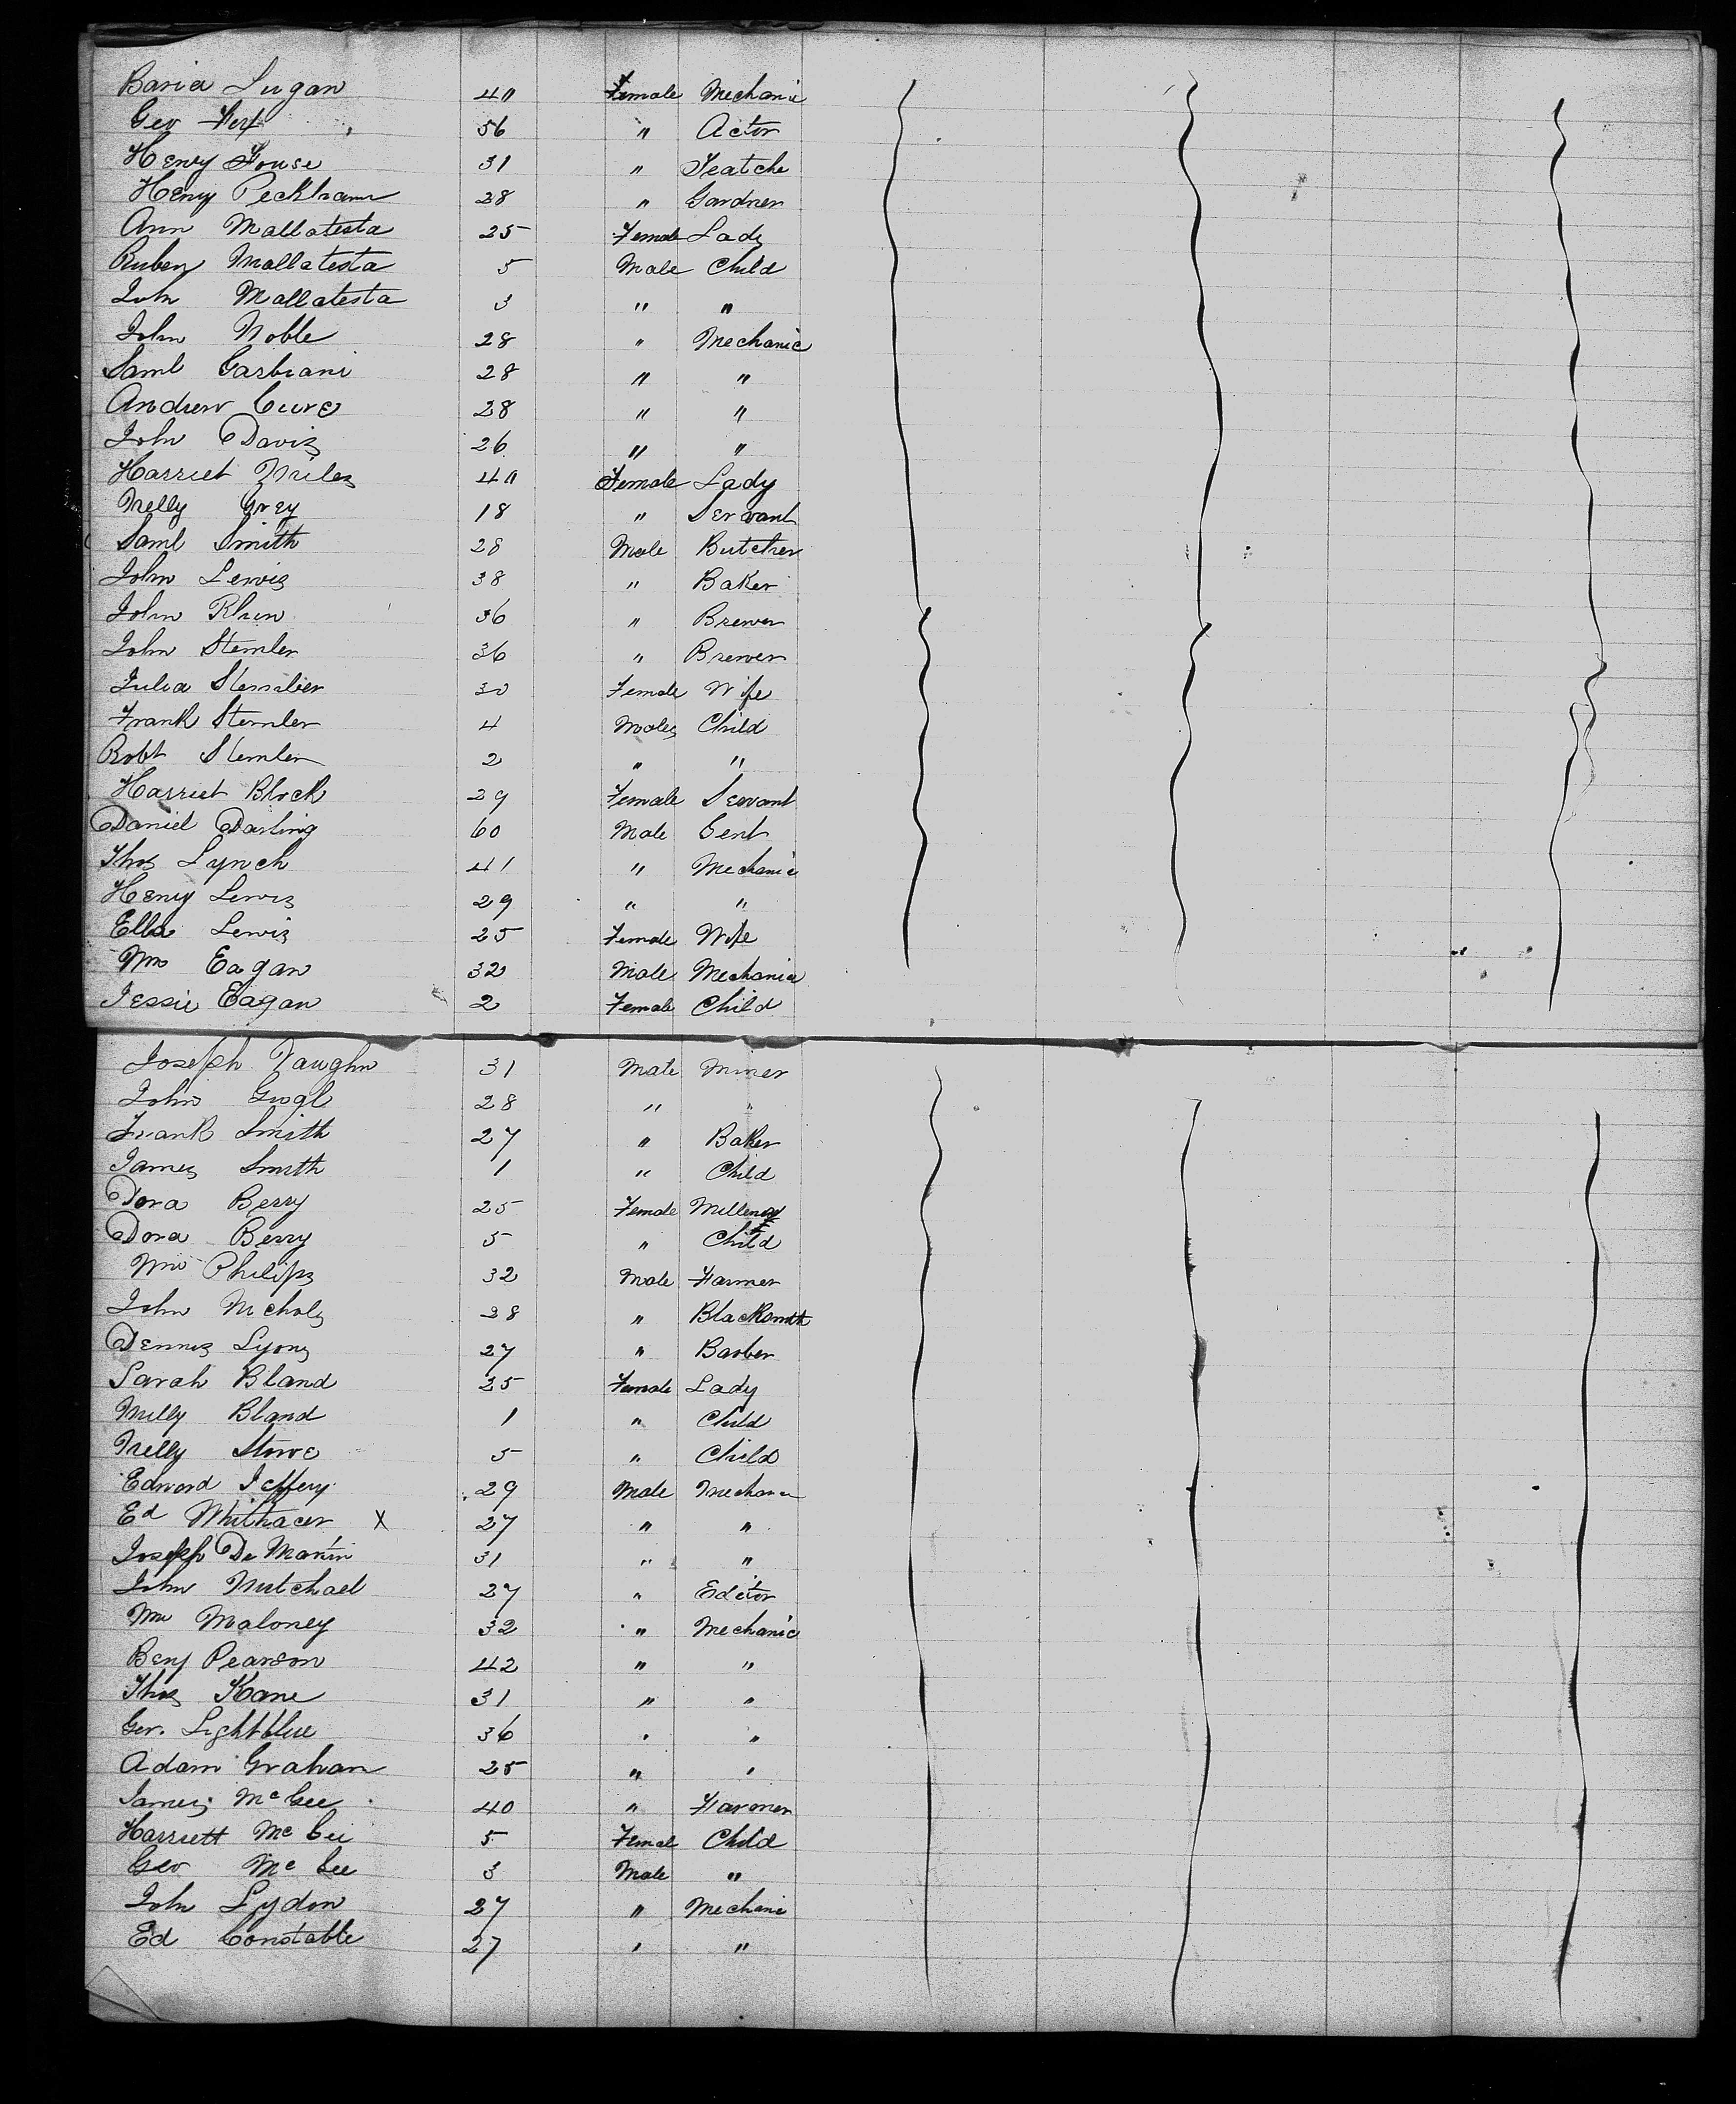 Baria Lugan 40 Female Mechanic
Geo 56 " Actor
Henry House 31 " Teatche
Henry Peckham 28 " Gardner
Ann Mallatesta 25 Female Lady
Ruben Mallatesta 5 Male Child
John Mallatesta 3 " "
John Noble 28 " Mechanic
Saml Gasbiani 28 " "
Andrew Cure 28 " "
John Davis 26 " "
Harriet Miles 40 Female Lady
Nelly Grey 18 " Servant
Saml Smith 28 Male Butcher
John Lewis 38 " Baker
John Rhin 36 " Brewer
John Stemler 36 " Brewer
Julia Stemler 30 Female Wife
Frank Stemler 4 Male Child
Robt Stemler 2 " "
Harriet Block 29 Female Servant
Daniel Darling 60 Male Gent
Thos Lynch 41 " Mechanic
Henry Lewis 29 " "
Ella Lewis 25 Female Wife
Wm Eagan 32 Male Mechanic
Jessie Eagan 2 Female Child
Joseph Vaughn 31 Male Miner
John Gugl 28 " "
Frank Smith 27 " Baker
James Smith 1 " Child
Dora Berry 25 Female Millener
Dora Berry 5 " Child
Wm Philips 32 Male Farmer
John Nichols 28 " Blacksmith
Dennis Lyons 27 " Barber
Sarah Bland 25 Female Lady
Milly Bland 1 " Child
Nelly Stowe 5 " Child
Edward Jeffery 29 Male Mechanic
Ed Whithacer X 27 " "
Joseph De Marin 31 " "
John Mitchael 27 " Editor
Wm Maloney 32 " Mechanic
Benj Pearson 42 " "
Thos Kane 31 " "
Geo. Lightblue 36 " "
Adam Graham 25 " "
James McGee 40 " Farmer
Harriett McGee 5 Femal Child
Geo McGee 3 Male "
John Lydon 27 " Mechani
Ed Constable 27 " "